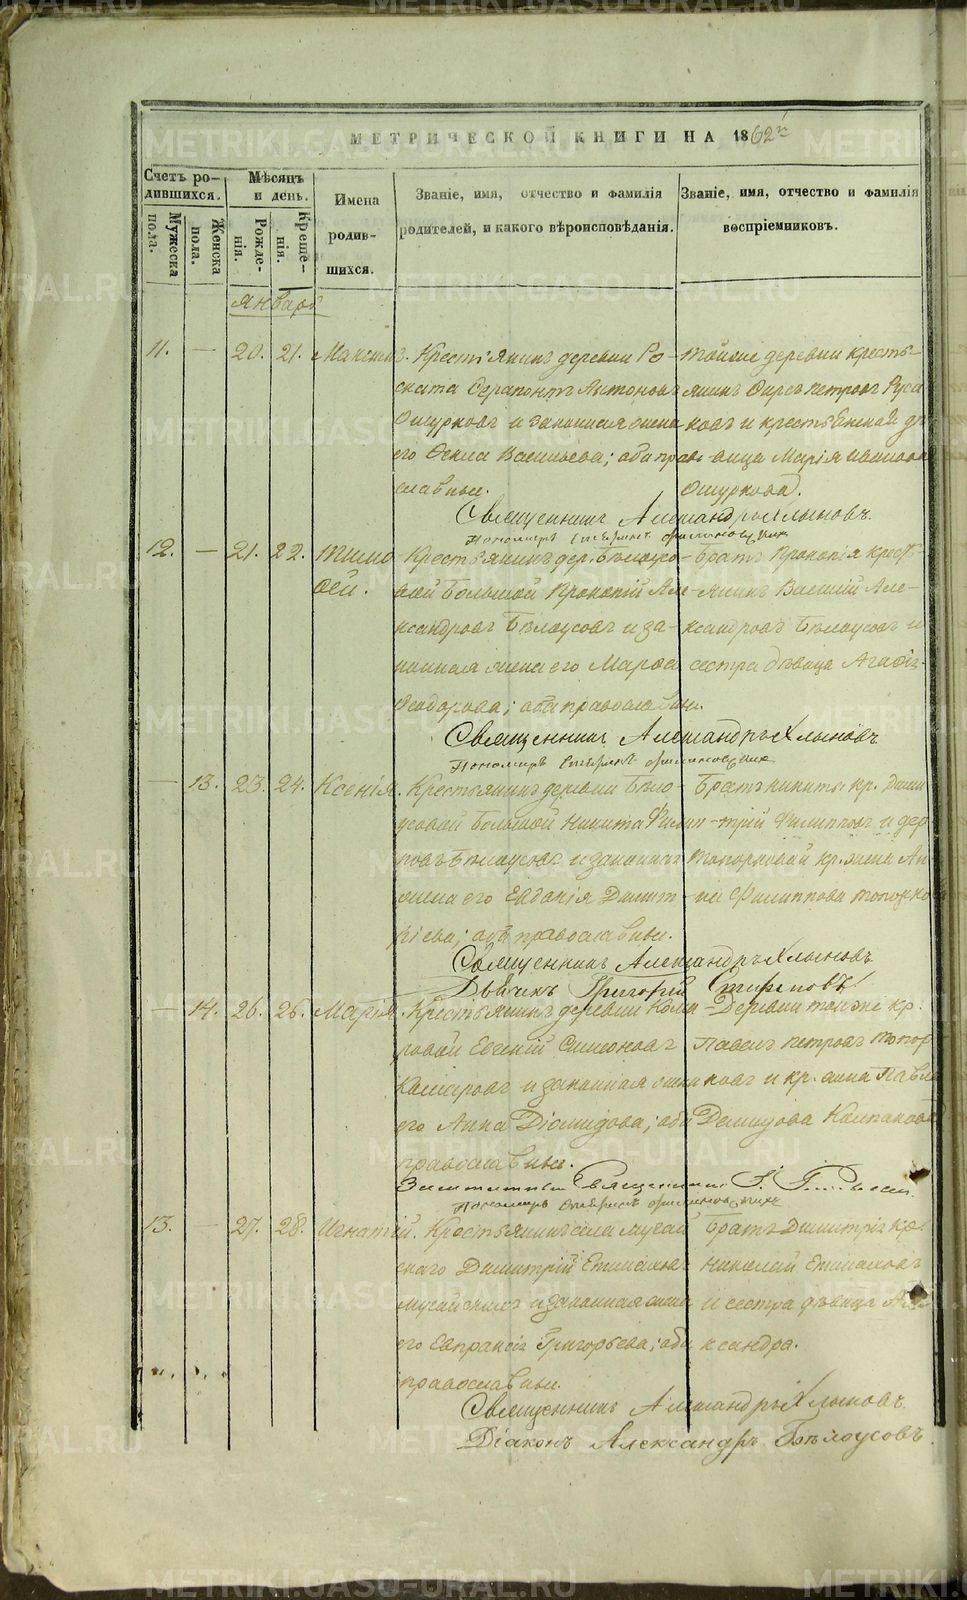 МЕТРИЧЕСКОЙ КНИГИ НА 1862й
Счетъ ро-
дившихся.
Мужеска
пола.
Женска
пола.
Мѣсяцъ
и день.
Рожде-
нія.
Креще-
нія.
Имена
родив-
шихся.
Званіе, имя, отчество и фамилія
родителей, и какого вѣроисповѣданія.
Званіе, имя, отчество и фамилія
воспріемниковъ.
Январь
11. — 20. 21. Максимъ.
Крестьянинъ деревни Ро-
ската Ферапонтъ Антоновъ
Ошурковъ и законная жена
его Ѳекла Васильева; оба право-
славные.
Тойже деревни кресть-
янинъ Ѳирсъ Петровъ Руса-
ковъ и крестьянская дѣ-
вица Марія Иванова
Ошуркова.
Священникъ Александръ Хлыновъ.
Пономарь
12. — 21. 22. Тимо-
ѳей.
Крестьянинъ дер. Бѣлоусо-
вой Большой Прокопій Але-
ксандровъ Бѣлоусовъ и за-
конная жена его Марѳа
Ѳеодорова; оба православные.
Братъ Прокопія крест-
янинъ Василій Але-
ксандровъ Бѣлоусовъ и
сестра дѣвица Агафія.
Священникъ Александръ Хлыновъ.
Пономарь
— 13. 23. 24. Ксенія.
Крестьянинъ деревни Бѣло-
усовой Большой Никита Филип-
повъ Бѣлоусовъ и законная
жена его Евдокія Димит-
ріева; оба православные.
Братъ Никиты кр. Дими-
трій Филипповъ и дер.
Топорковой кр. жена
Филиппова Топорко
Священникъ Александръ Хлыновъ
Дьячекъ Григорій Стефановъ
— 14. 26. 26. Марія.
Крестьянинъ деревни Кома-
ровой Евгеній Симеоновъ
Комаровъ и законная жена
его Анна Діомидова; оба
православные.
Деревни тойже кр.
Павелъ Петровъ Топор-
ковъ и кр. Анна Павло
Демидова
Заштатный Священникъ
Пономарь
13. — 27. 28. Игнатій.
Крестьянинъ села Мугай-
скаго Димитрій
и законная жена
его Евпраксія Григорьева; оба
православные.
Братъ Димитрія кр.
Николай
и сестра дѣвица Але-
ксандра.
Священникъ Александръ Хлыновъ.
Діаконъ Александръ Бѣлоусовъ
METRIKI.GASO-URAL.RU